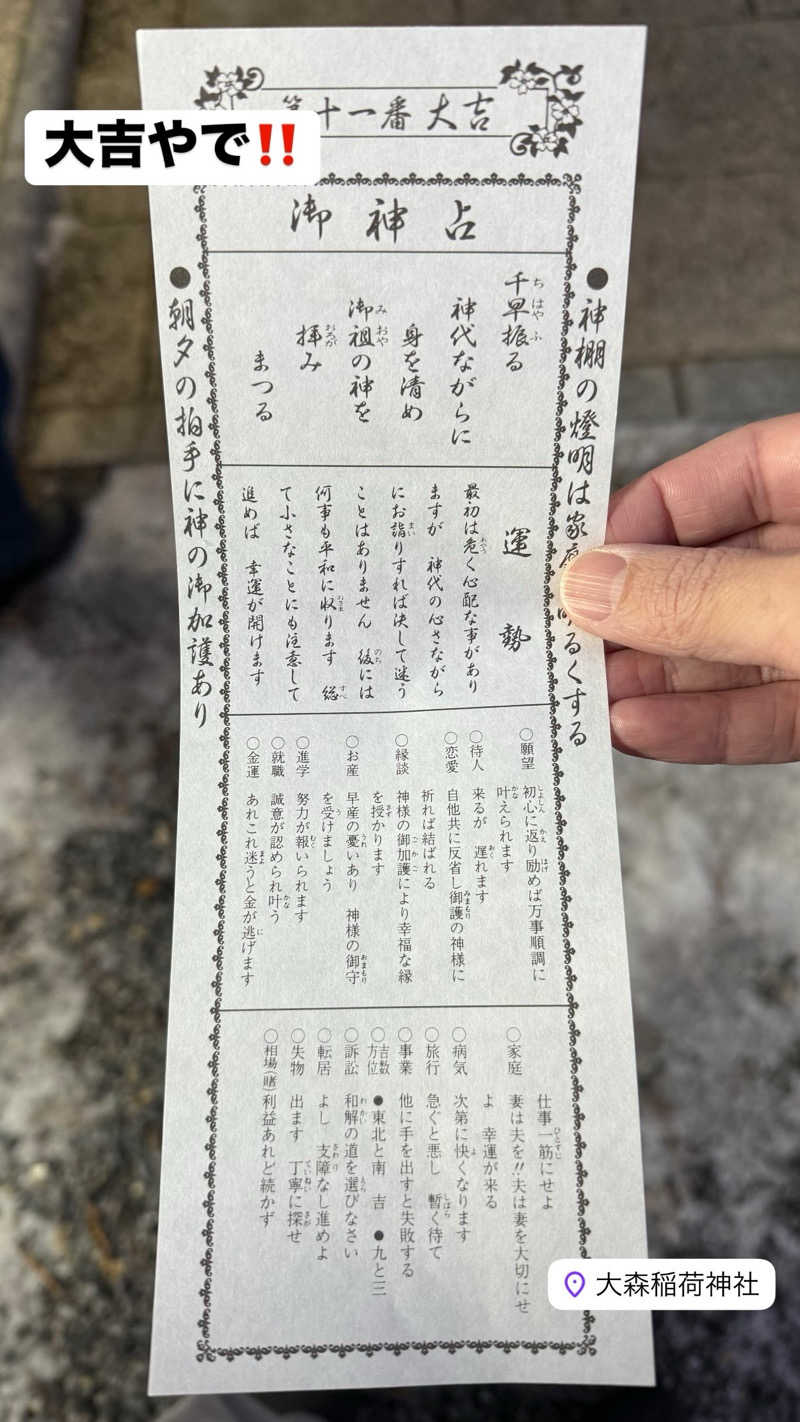 十一番 大吉
大吉やで‼️
御神占
●神棚の燈明は家
るくする
千早振る
神代ながらに
身を清め
御祖の神を
拝み
まつる
●朝夕の拍手に神の御加護あり
運勢
最初は危く心配な事があり
ますが 神代の心さながら
にお詣りすれば決して迷う
ことはありません 後には
何事も平和に収ります 総
て小さなことにも注意して
進めば 幸運が開けます
○願望 初心に返り励めば万事順調に
叶えられます
○待人 来るが 遅れます
○恋愛 自他共に反省し御護の神様に
祈れば結ばれる
○縁談 神様の御加護により幸福な縁
を授かります
○お産 早産の憂いあり 神様の御守
を受けましょう
○進学 努力が報いられます
○就職 誠意が認められ叶う
○金運 あれこれ迷うと金が逃げます
仕事一筋にせよ
○家庭 妻は夫を!!夫は妻を大切にせ
よ 幸運が来る
○病気 次第に快くなります
○旅行 急ぐと悪し 暫く待て
○事業 他に手を出すと失敗する
○吉数方位 ●東北と南 吉 ●九と三
○訴訟 和解の道を選びなさい
○転居 よし 支障なし進めよ
○失物 出ます 丁寧に探せ
○相場(賭) 利益あれど続かず
大森稲荷神社